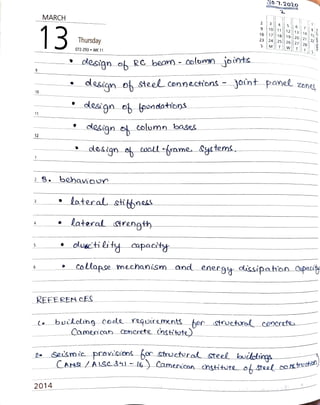 30.7.2020
2
MARCH
13 Thursday
072-293 • WK 11
• design of RC beam - column joints
• design of steel connections - joint panel zones
• design of foundations
• design of column bases
• design of wall-frame systems.
5. behaviour
• lateral stiffness
• lateral strength
• ductility capacity
• collapse mechanism and energy dissipation capacity
REFERENCES
1. building code requirements for structural concrete
(american concrete institute)
2. seismic provisions for structural steel buildings
(ANSI / AISC 341 - 16) (american institute of steel construction)
2014